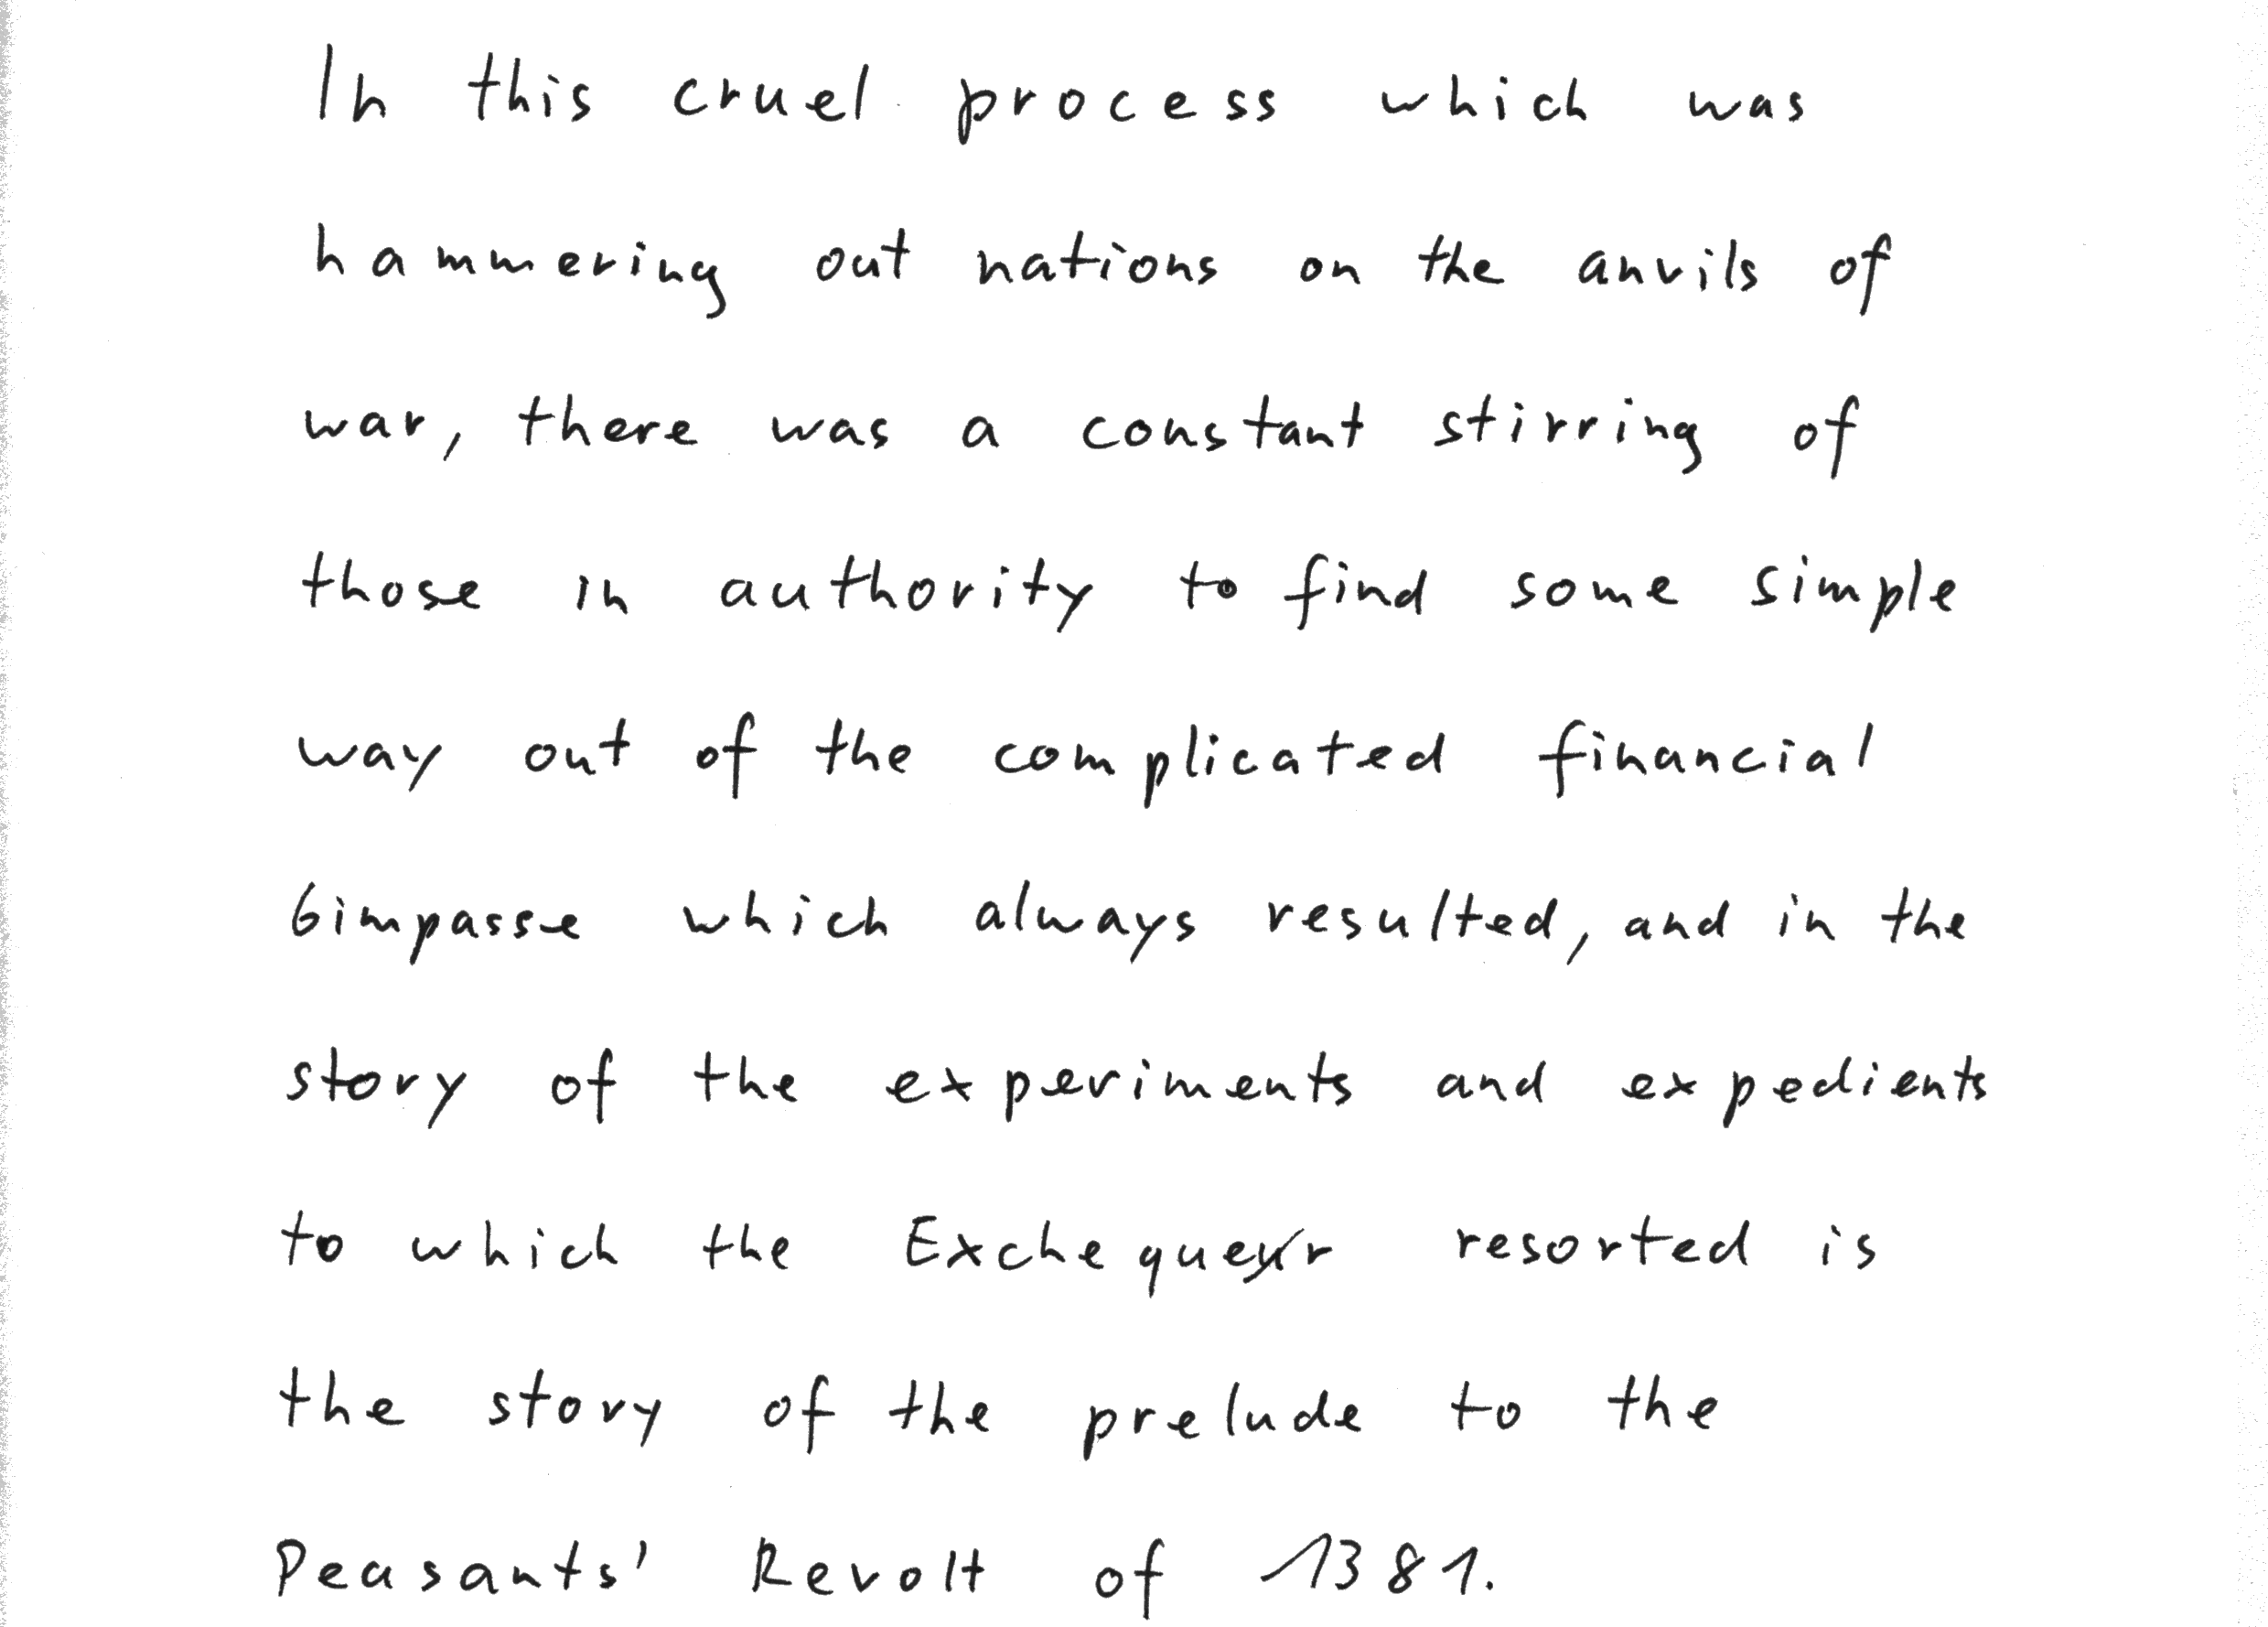 In this cruel process which was
hammering out nations on the anvils of
war, there was a constant stirring of
those in authority to find some simple
way out of the complicated financial
6impasse which always resulted, and in the
story of the experiments and expedients
to which the Exchequer resorted is
the story of the prelude to the
Peasants' Revolt of 1381.